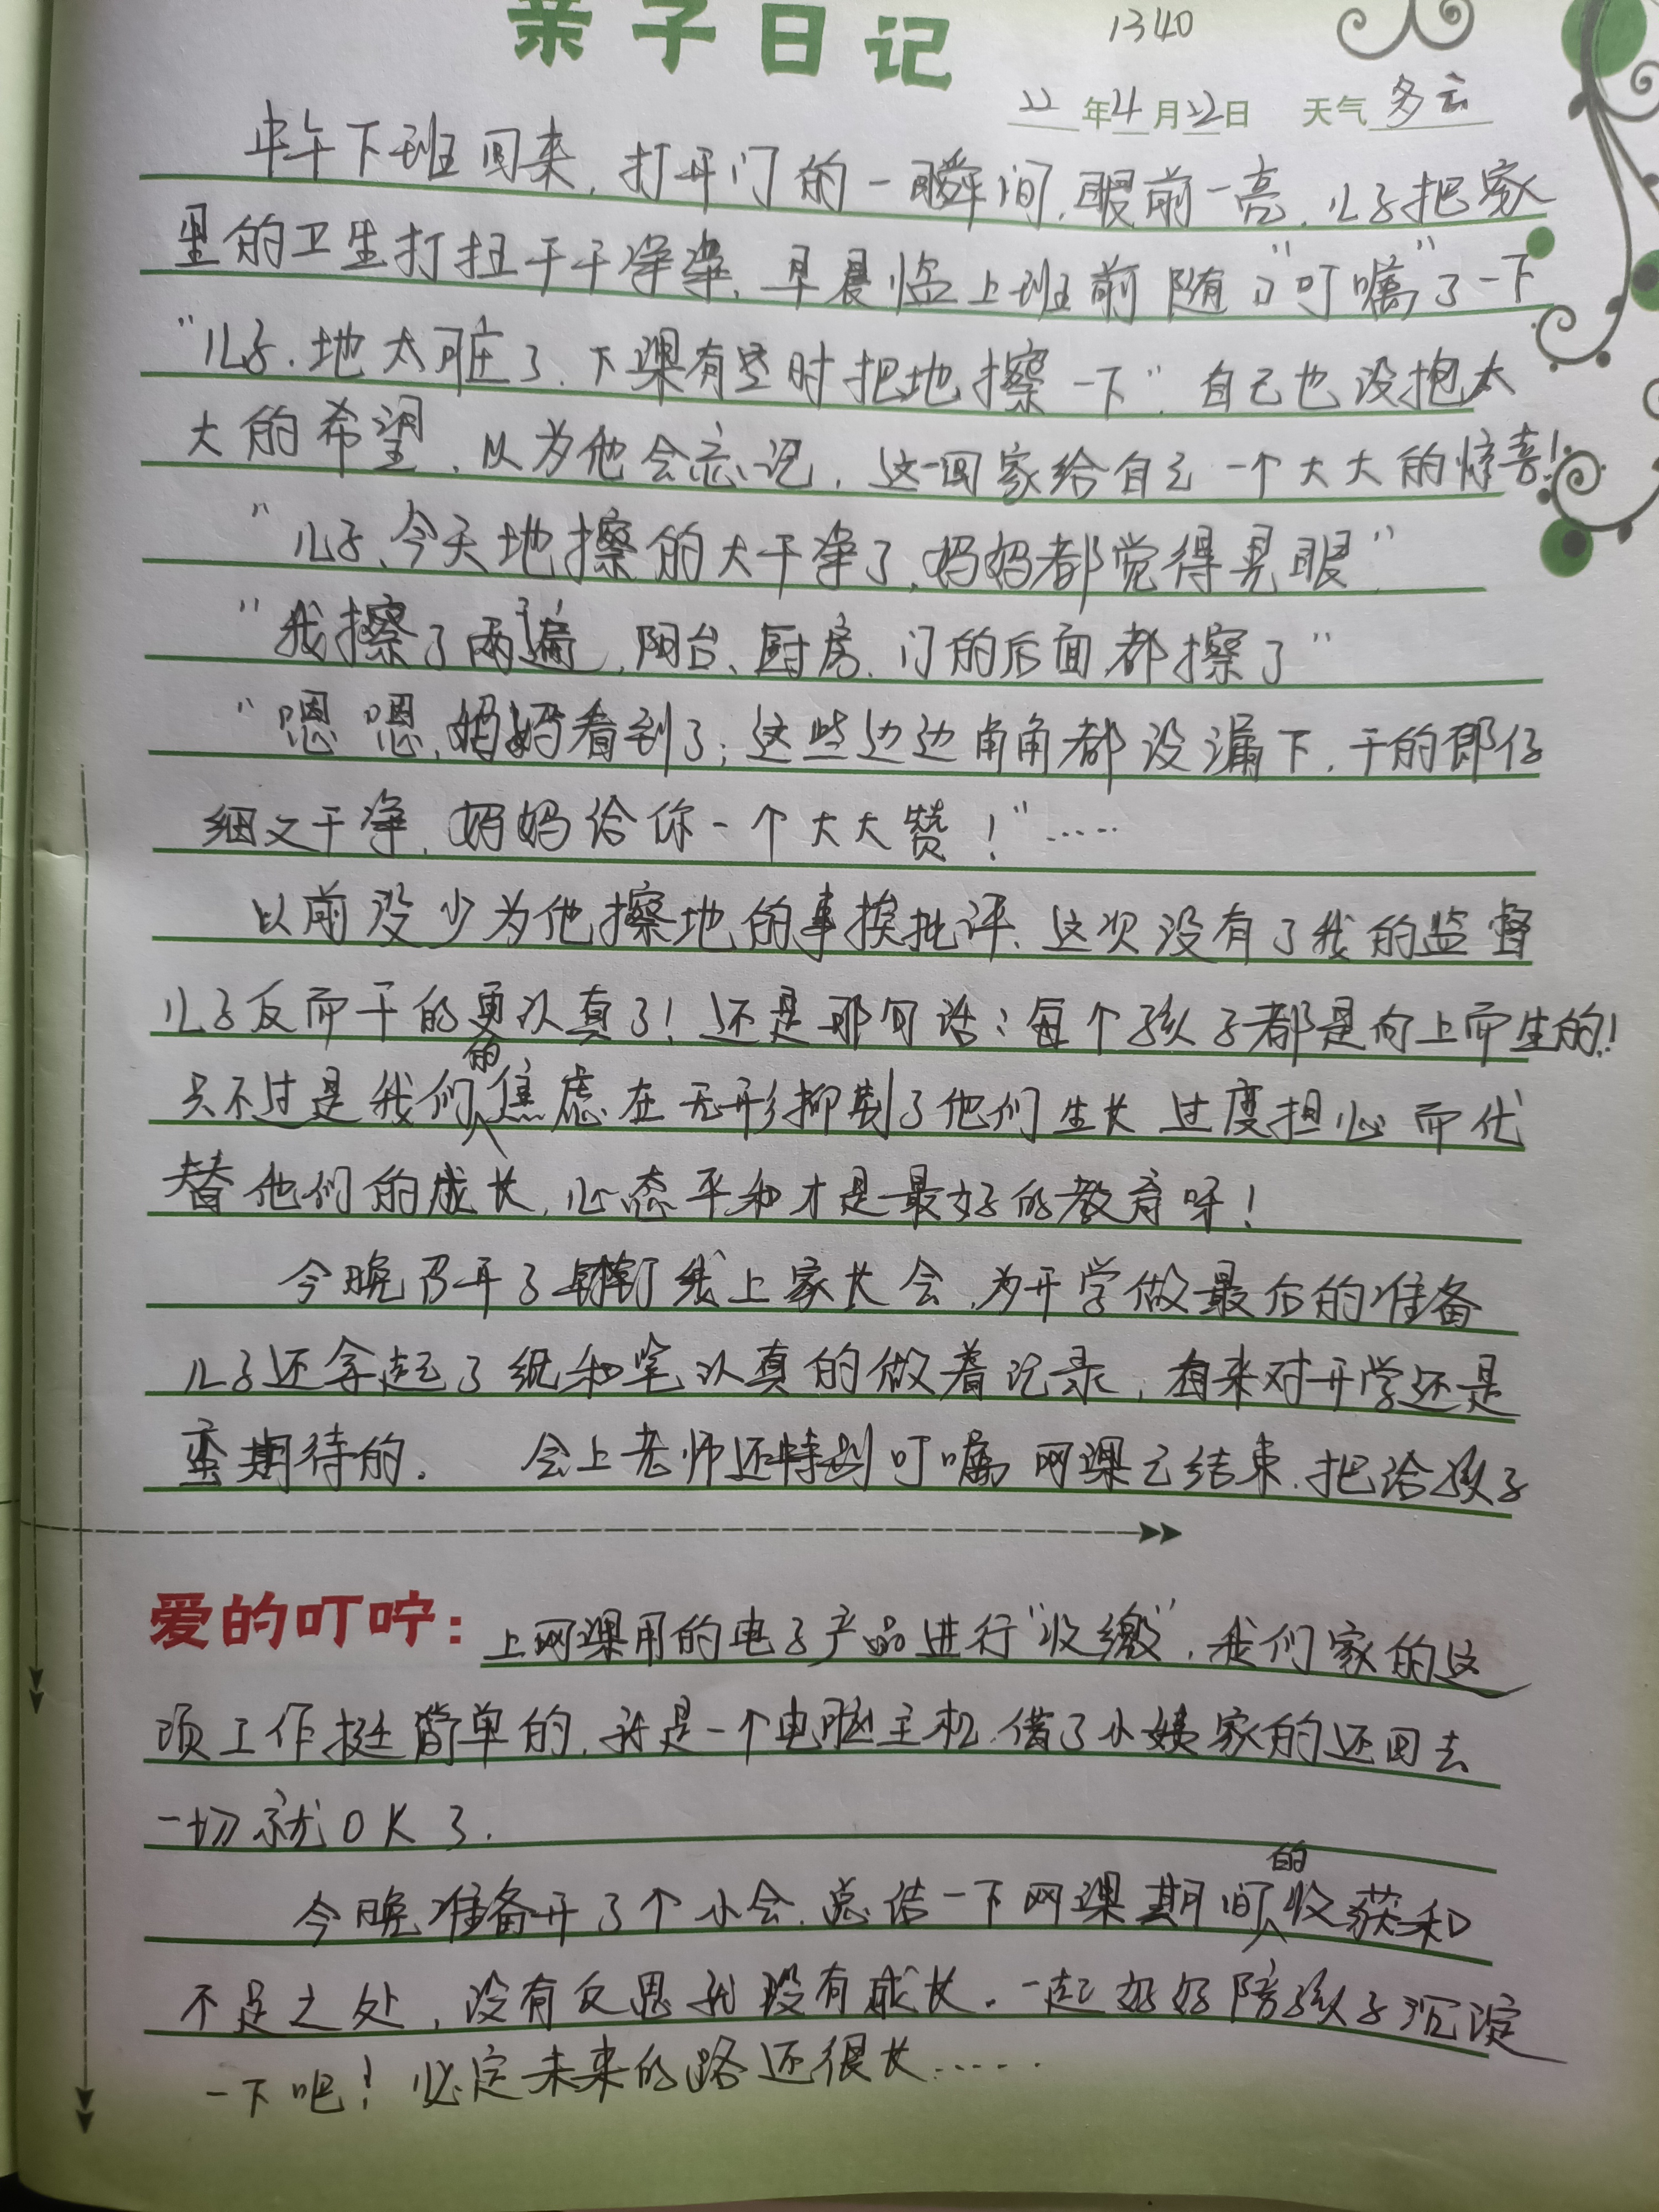 亲子日记
1340
22年4月22日 天气 多云
中午下班回来，打开门的一瞬间，眼前一亮，儿子把家
里的卫生打扫干干净净，早晨临上班前随口“叮嘱”了一下
“儿子，地太脏了，下课有空时把地擦一下”。自己也没抱太
大的希望，以为他会忘记，这一回家给自己一个大大的惊喜！
“儿子、今天地擦的太干净了，妈妈都觉得晃眼”
“我擦了两遍，阳台、厨房、门的后面都擦了”
“嗯嗯，妈妈看到了；这些边边角角都没漏下，干的即仔
细又干净，妈妈给你一个大大赞！”……
以前没少为他擦地的事挨批评，这次没有了我的监督
儿子反而干的更认真了！还是那句话：每个孩子都是向上而生的！
只不过是我们的焦虑在无形抑制了他们生长 过度担心而代
替他们的成长，心态平和才是最好的教育呀！
今晚召开了钉钉线上家长会，为开学做最后的准备
儿子还拿起了纸和笔认真的做着记录，看来对开学还是
蛮期待的。 会上老师还特别叮嘱网课已结束，把给孩子
爱的叮咛：上网课用的电子产品进行“收缴”，我们家的这
项工作挺简单的，就是一个电脑主机，借了小姨家的还回去
一切就OK了.
今晚准备开了个小会，总结一下网课期间的收获和
不足之处，没有反思就没有成长。一起好好陪孩子沉淀
一下吧！必定未来的路还很长……